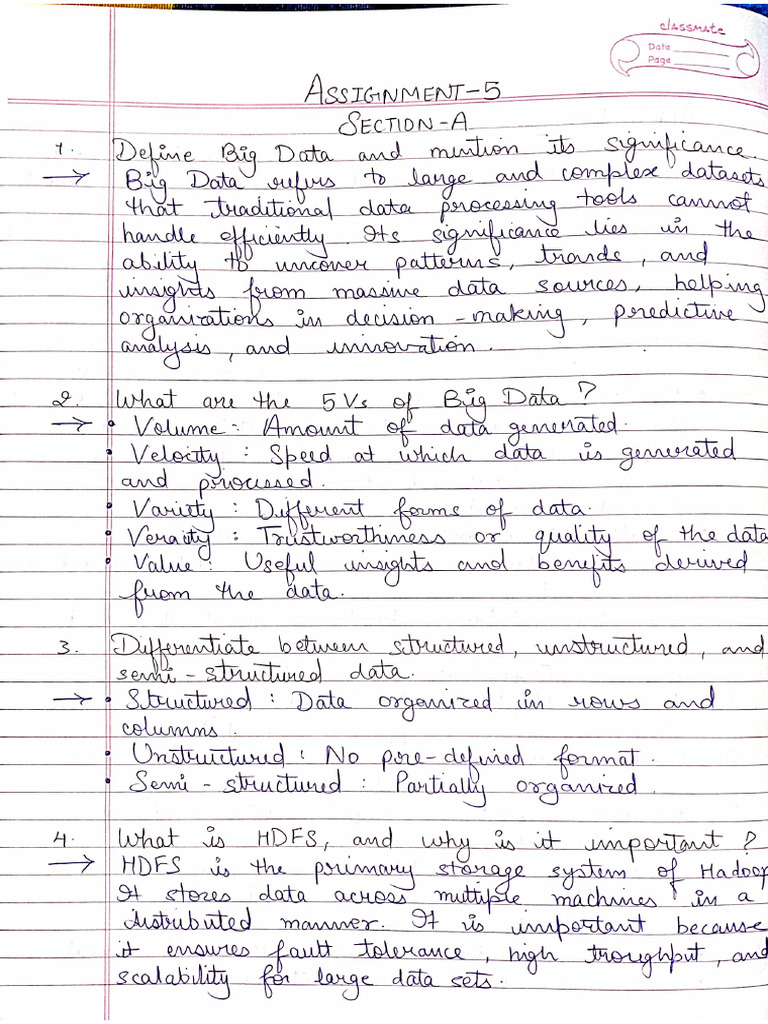 classmate
Date
Page
ASSIGNMENT-5
SECTION-A
1. Define Big Data and mention its significance.
→ Big Data refers to large and complex datasets
that traditional data processing tools cannot
handle efficiently. Its significance lies in the
ability to uncover patterns, trands, and
insights from massive data sources, helping
organizations in decision-making, predictive
analysis, and innovation.
2. What are the 5Vs of Big Data?
→ • Volume: Amount of data generated.
• Velocity: Speed at which data is generated
and processed.
• Variety: Different forms of data.
• Veracity: Trustworthiness or quality of the data
• Value: Useful insights and benefits derived
from the data.
3. Differentiate between structured, unstructured, and
semi-structured data.
→ • Structured: Data organized in rows and
columns.
• Unstructured: No pre-defined format.
• Semi-structured: Partially organized.
4. What is HDFS, and why is it important?
→ HDFS is the primary storage system of Hadoop
It stores data across multiple machines in a
distributed manner. It is important because
it ensures fault tolerance, high troughput, and
scalability for large data sets.